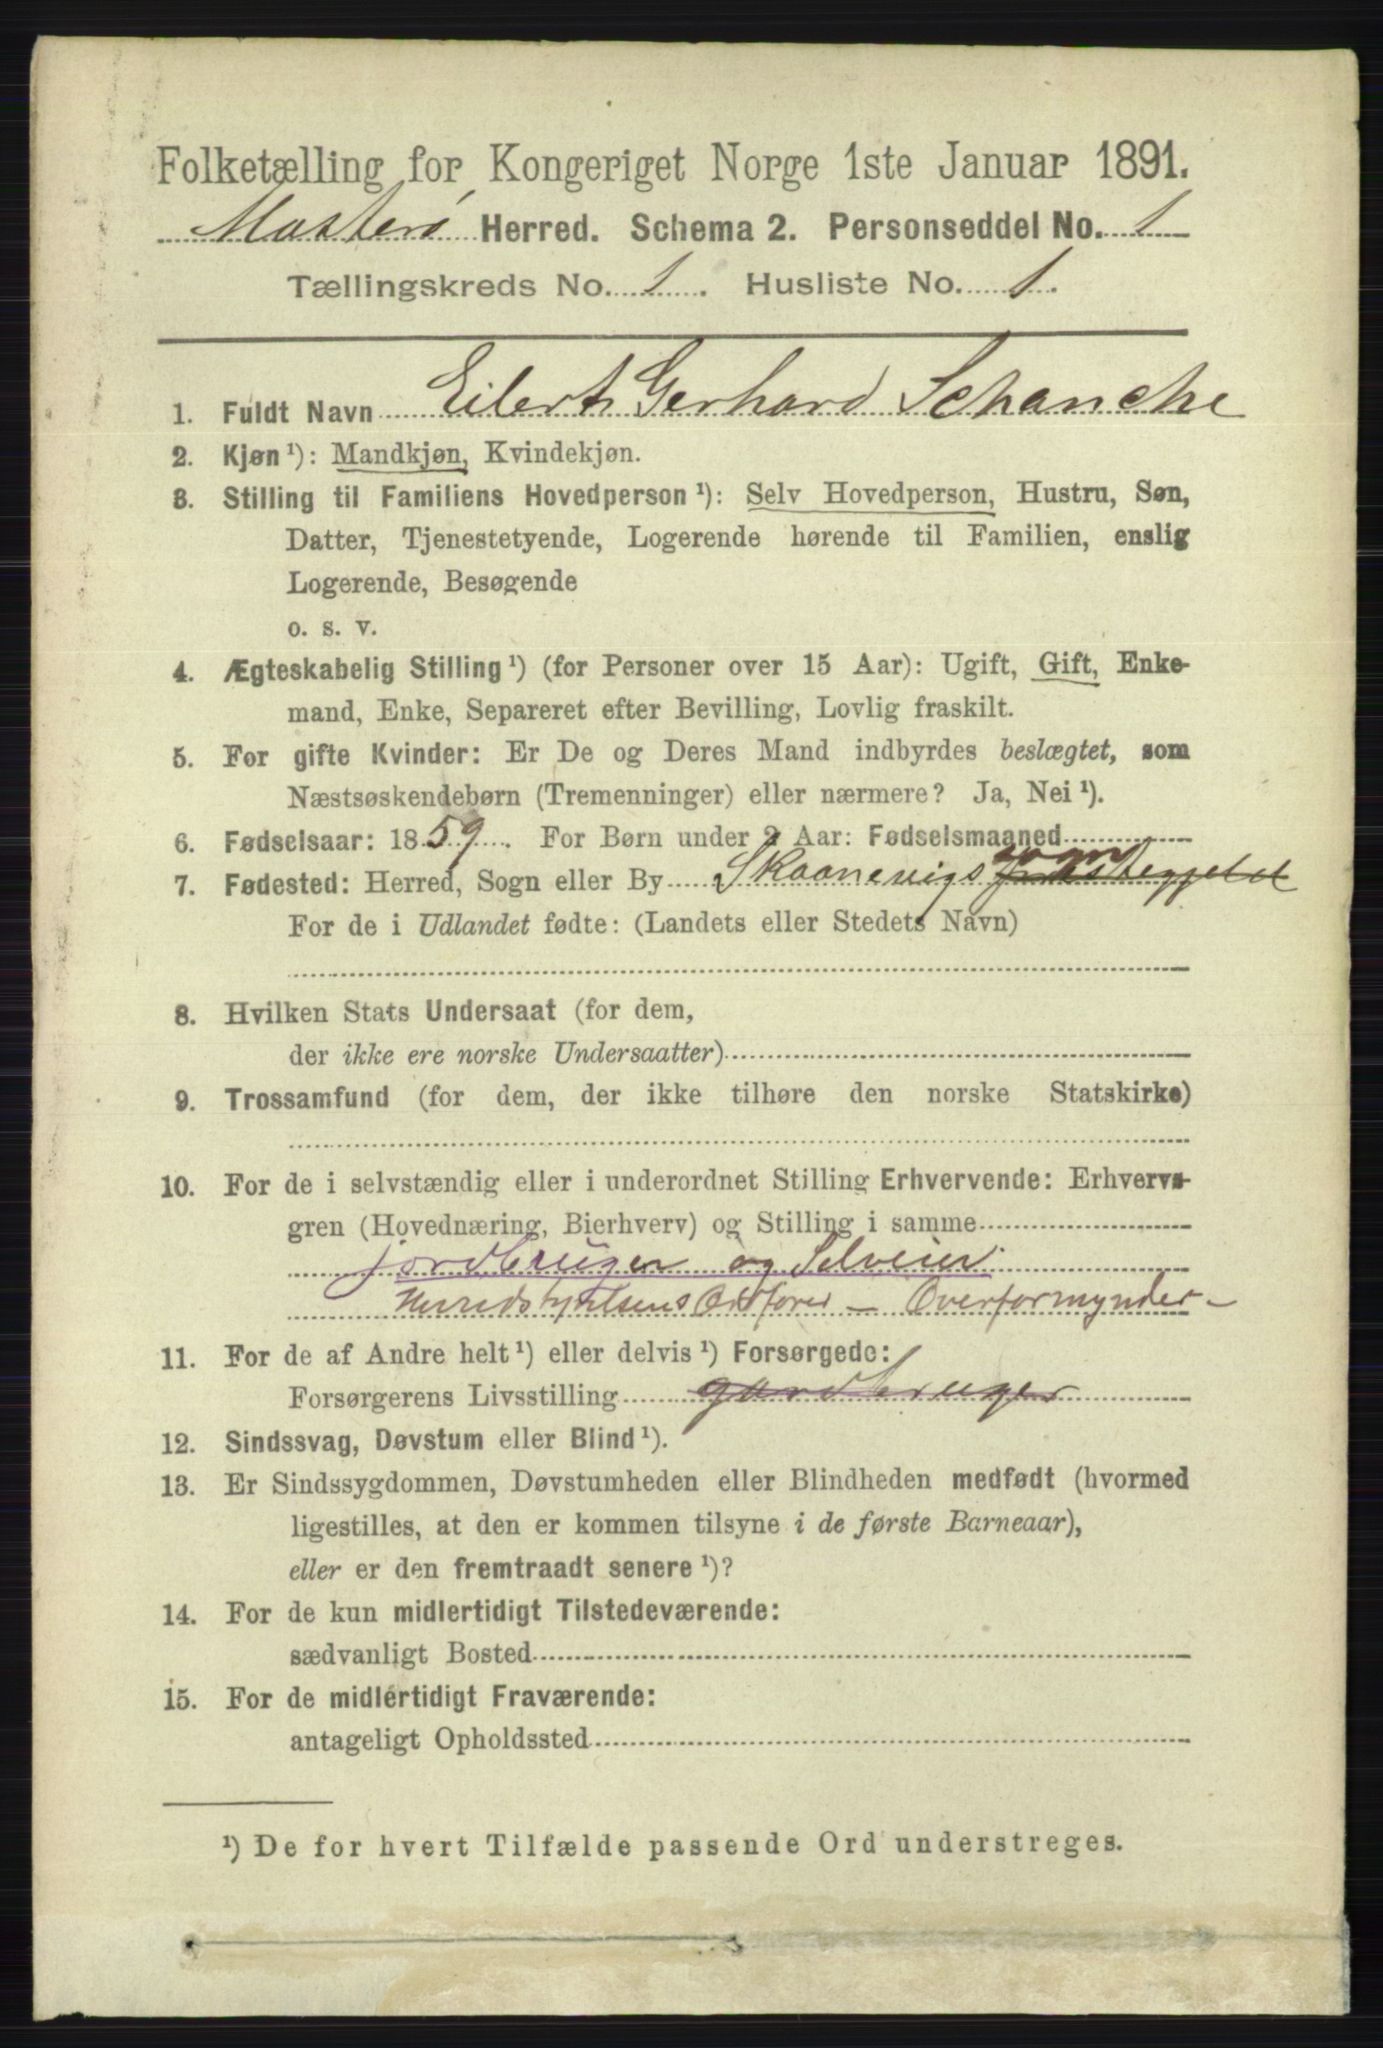 Folketælling for Kongeriget Norge 1ste Januar 1891.
Mosterø Herred. Schema 2. Personseddel No. 1
Tællingskreds No. 1. Husliste No. 1.
1. Fuldt Navn Eilert Gerhard Schanche
2. Kjøn ¹): Mandkjøn, Kvindekjøn.
3. Stilling til Familiens Hovedperson ¹): Selv Hovedperson, Hustru, Søn,
Datter, Tjenestetyende, Logerende hørende til Familien, enslig
Logerende, Besøgende
o. s. v.
4. Ægteskabelig Stilling ¹) (for Personer over 15 Aar): Ugift, Gift, Enke-
mand, Enke, Separeret efter Bevilling, Lovlig fraskilt.
5. For gifte Kvinder: Er De og Deres Mand indbyrdes beslægtet, som
Næstsøskendebørn (Tremenninger) eller nærmere? Ja, Nei ¹).
6. Fødselsaar: 1859. For Børn under 2 Aar: Fødselsmaaned
sogn
7. Fødested: Herred, Sogn eller By Skaanevigs præstegjeld
For de i Udlandet fødte: (Landets eller Stedets Navn)
8. Hvilken Stats Undersaat (for dem,
der ikke ere norske Undersaatter)
9. Trossamfund (for dem, der ikke tilhøre den norske Statskirke)
10. For de i selvstændig eller i underordnet Stilling Erhvervende: Erhvervs-
gren (Hovednæring, Bierhverv) og Stilling i samme
jordbruger og Selveier.
Herredstyrelsens Ordfører – Overformynder –
11. For de af Andre helt ¹) eller delvis ¹) Forsørgede:
Forsørgerens Livsstilling gardbruger
12. Sindssvag, Døvstum eller Blind ¹).
13. Er Sindssygdommen, Døvstumheden eller Blindheden medfødt (hvormed
ligestilles, at den er kommen tilsyne i de første Barneaar),
eller er den fremtraadt senere ¹)?
14. For de kun midlertidigt Tilstedeværende:
sædvanligt Bosted
15. For de midlertidigt Fraværende:
antageligt Opholdssted
¹) De for hvert Tilfælde passende Ord understreges.